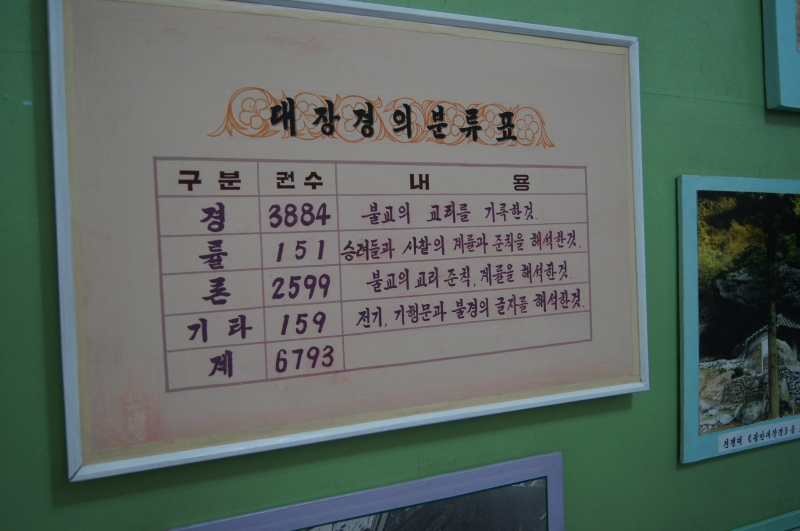 대장경의분류표
구분 권수 내용
경 3884 불교의 교리를 기록한것.
률 151 승려들과 사찰의 계률과 준칙을 해석한것.
론 2599 불교의 교리 준칙, 계률을 해석한것
기타 159 전기, 기행문과 불경의 글자를 해석한것.
계 6793